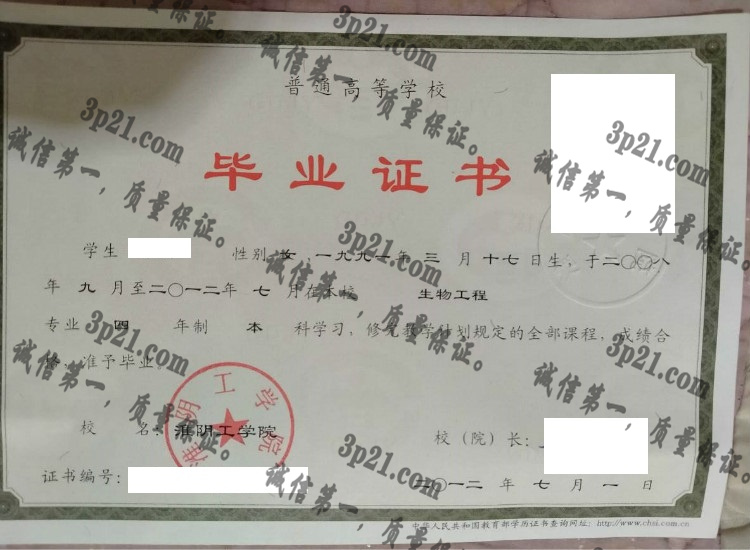 普通高等学校
毕业证书
学生 性别 女，一九九一年 三 月 十七 日生，于二〇〇八
年 九 月至二〇一二年 七 月在本校 生物工程
专业 四 年制 本 科学习，修完教学计划规定的全部课程，成绩合
格，准予毕业。
淮阴工学院
校 名：淮阴工学院
校（院）长：
证书编号：
二〇一二 年 七 月 一 日
中华人民共和国教育部学历证书查询网址：http://www.chsi.com.cn
3p21.com
诚信第一，质量保证。
3p21.com
诚信第一，质量保证。
3p21.com
诚信第一，质量保证。
3p21.com
诚信第一，质量保证。
3p21.com
诚信第一，质量保证。
3p21.com
诚信第一，质量保证。
3p21.com
诚信第一，质量保证。
质量保证。